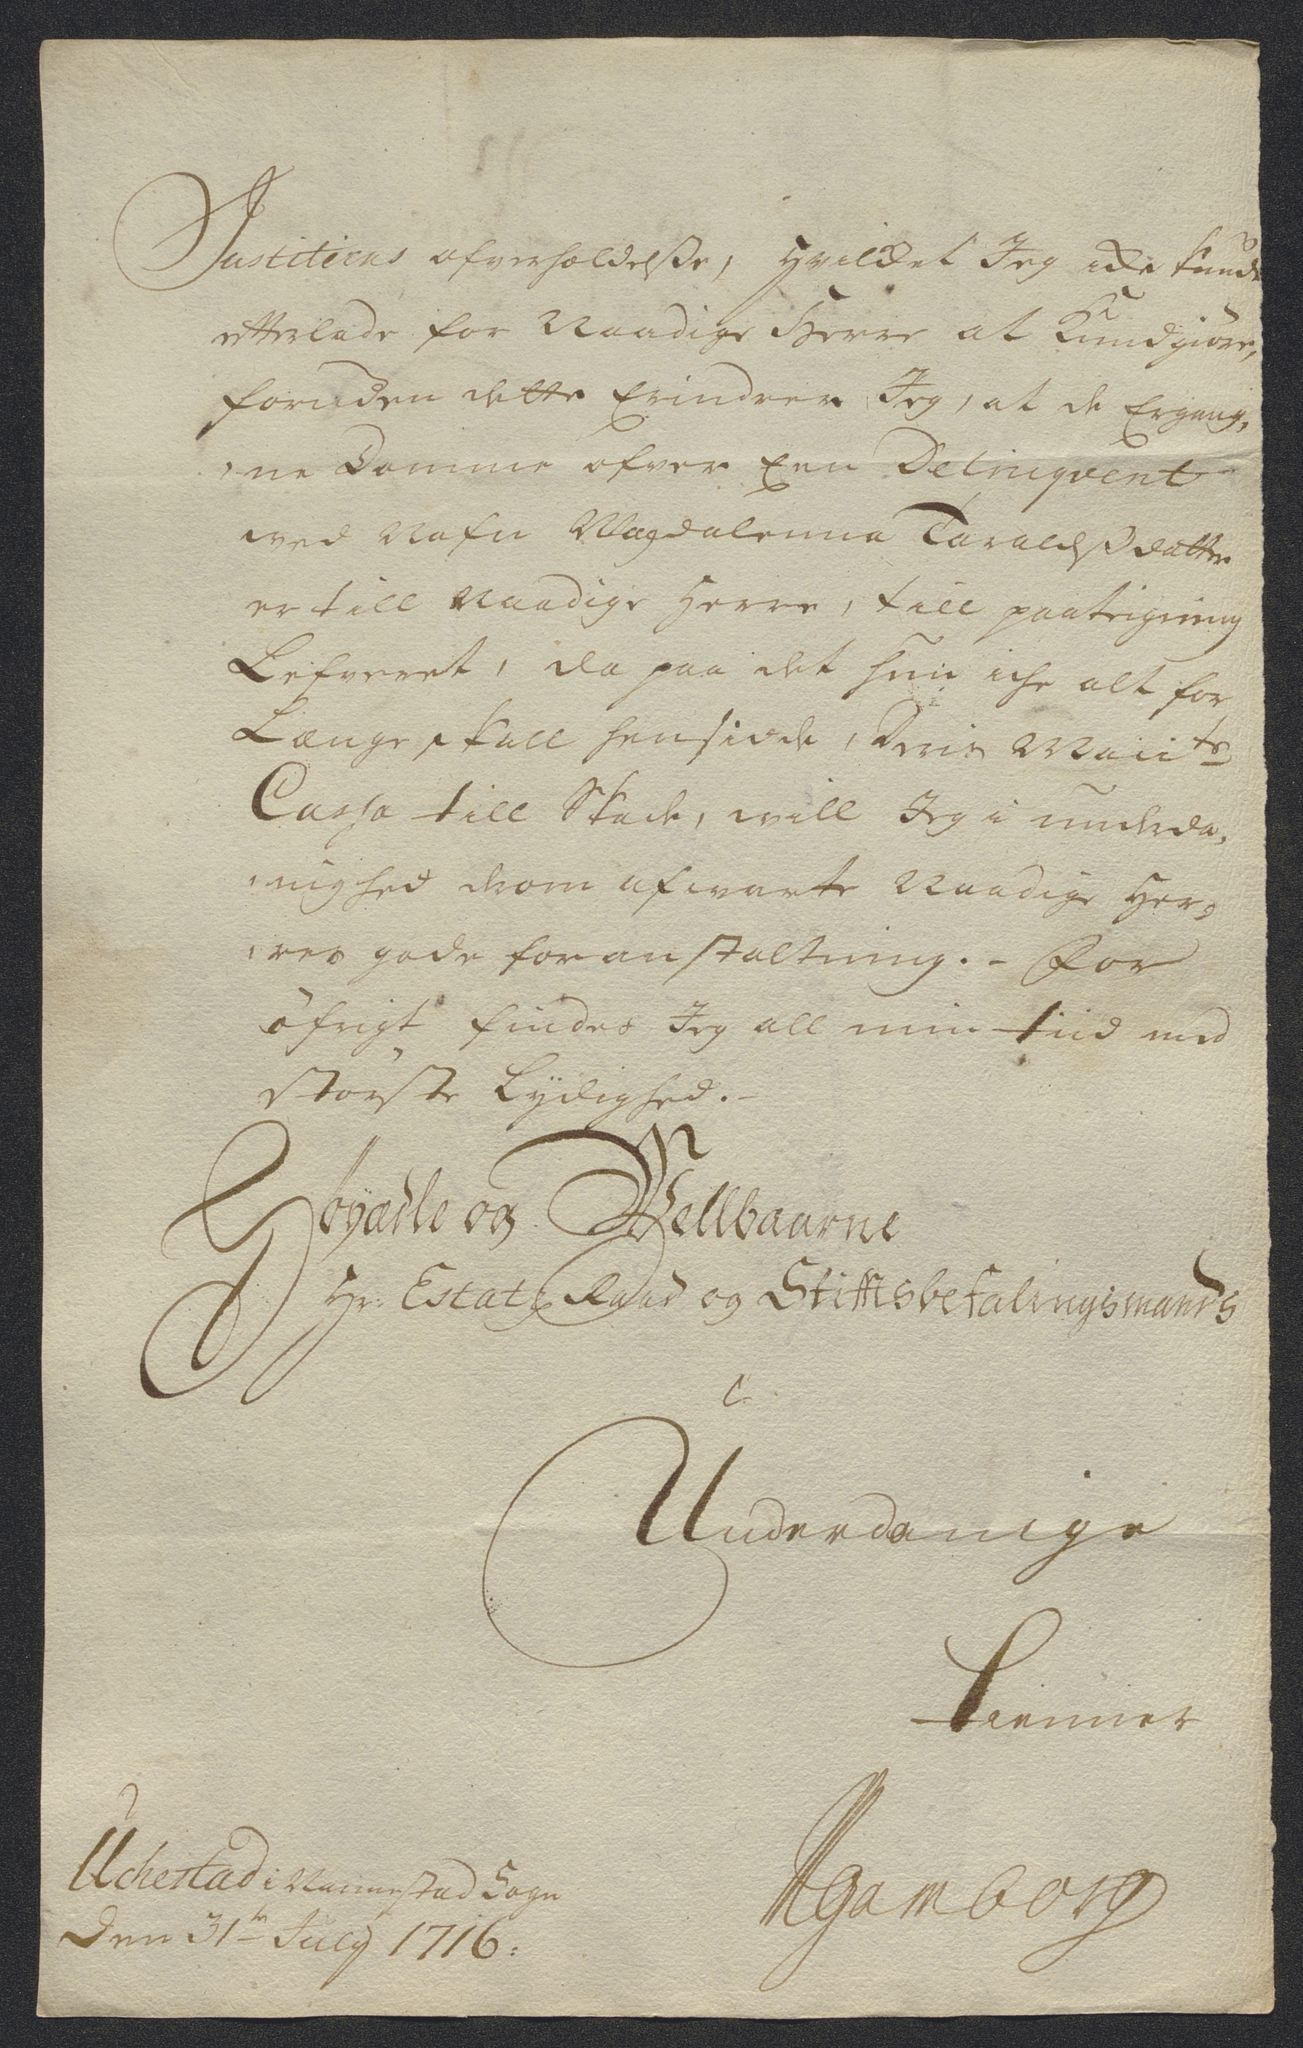 Justitiens ofverholdelsse, Hvilcket Jeg icke kunde
efterlade for Naadige Herre at Kundgiøre,
foruden dette Erindrer Jeg, at de Ergang,
,ne Domme ofver Een Delinqvent
ved Nafn Magdalenna Taraldsdatter
er till Naadige Herre, till paateigning
Lefveret, da paa det hun iche alt for
Længe skall hensidde, Deris Maiits
Cassa till Skade, will Jeg i underda,
,nighed derom afvarte Naadige Her,
,res gode foranstaltning. - For
øfrigt findes Jeg all min tiid med
største Lydighed. -
Høyædle og Wellbaarne
Hr: Estats Raad og Stifftsbefalingsmands
Underdanige
tienner
NGamborg
Uchestad i Nannestad Sogn
Den 31te July 1716: